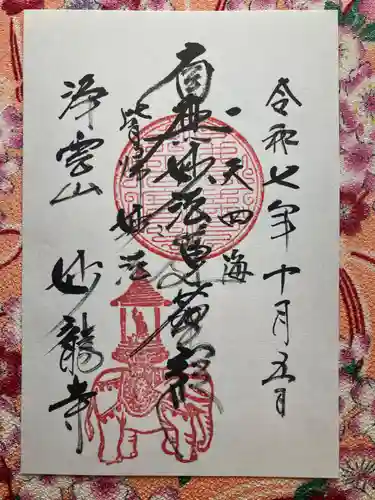 令和七年十月五日
一天四海
南無妙法蓮華経
皆帰妙法
浄雲山
妙龍寺